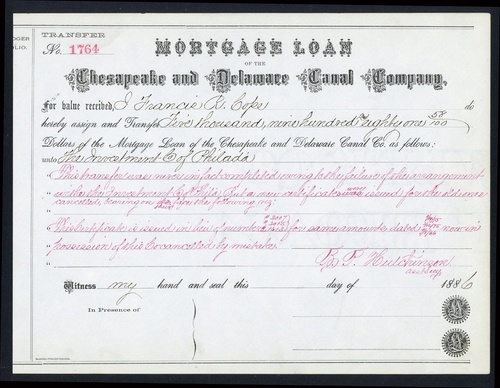 TRANSFER
No. 1764
MORTGAGE LOAN
OF THE
Chesapeake and Delaware Canal Company,
For value received, I Francis R. Cope do
hereby assign and Transfer Five thousand, nine hundred & eighty one 58/100
Dollars of the Mortgage Loan of the Chesapeake and Delaware Canal Co. as follows:
unto The Investment Co of Philada
This transfer was never in fact completed owing to the failure of the arrangement
with the Investment Co of Phila. But a new certificate was issued for the old ones
cancelled, bearing in face the following viz:
This certificate is issued in lieu of numbers for same amounts dated now in
possession of this Co cancelled by mistake
P. Hutchinson
Witness my hand and seal this day of 1886
In Presence of